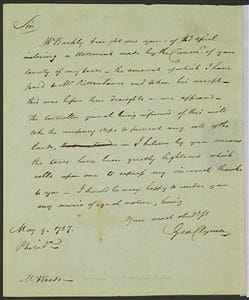 Sir
Mr Barkly brought me yours of 23 April
inclosing a statement made by the Commrs of your
county of my taxes — the amount of which I have
paid to Mr Rittenhouse and taken his receipt —
this was before thro' Douglass — on
the controller genl being informed of this will
take the necessary steps to prevent any sale of the
lands. — I believe by your means
the taxes have been greatly lightened which
calls upon me to express my sincere thanks
to you — I should be very happy to render you
any service of good nature, being
Your most obedt St
Geo Clymer
May 9. 1787.
Philada
Mr Woods